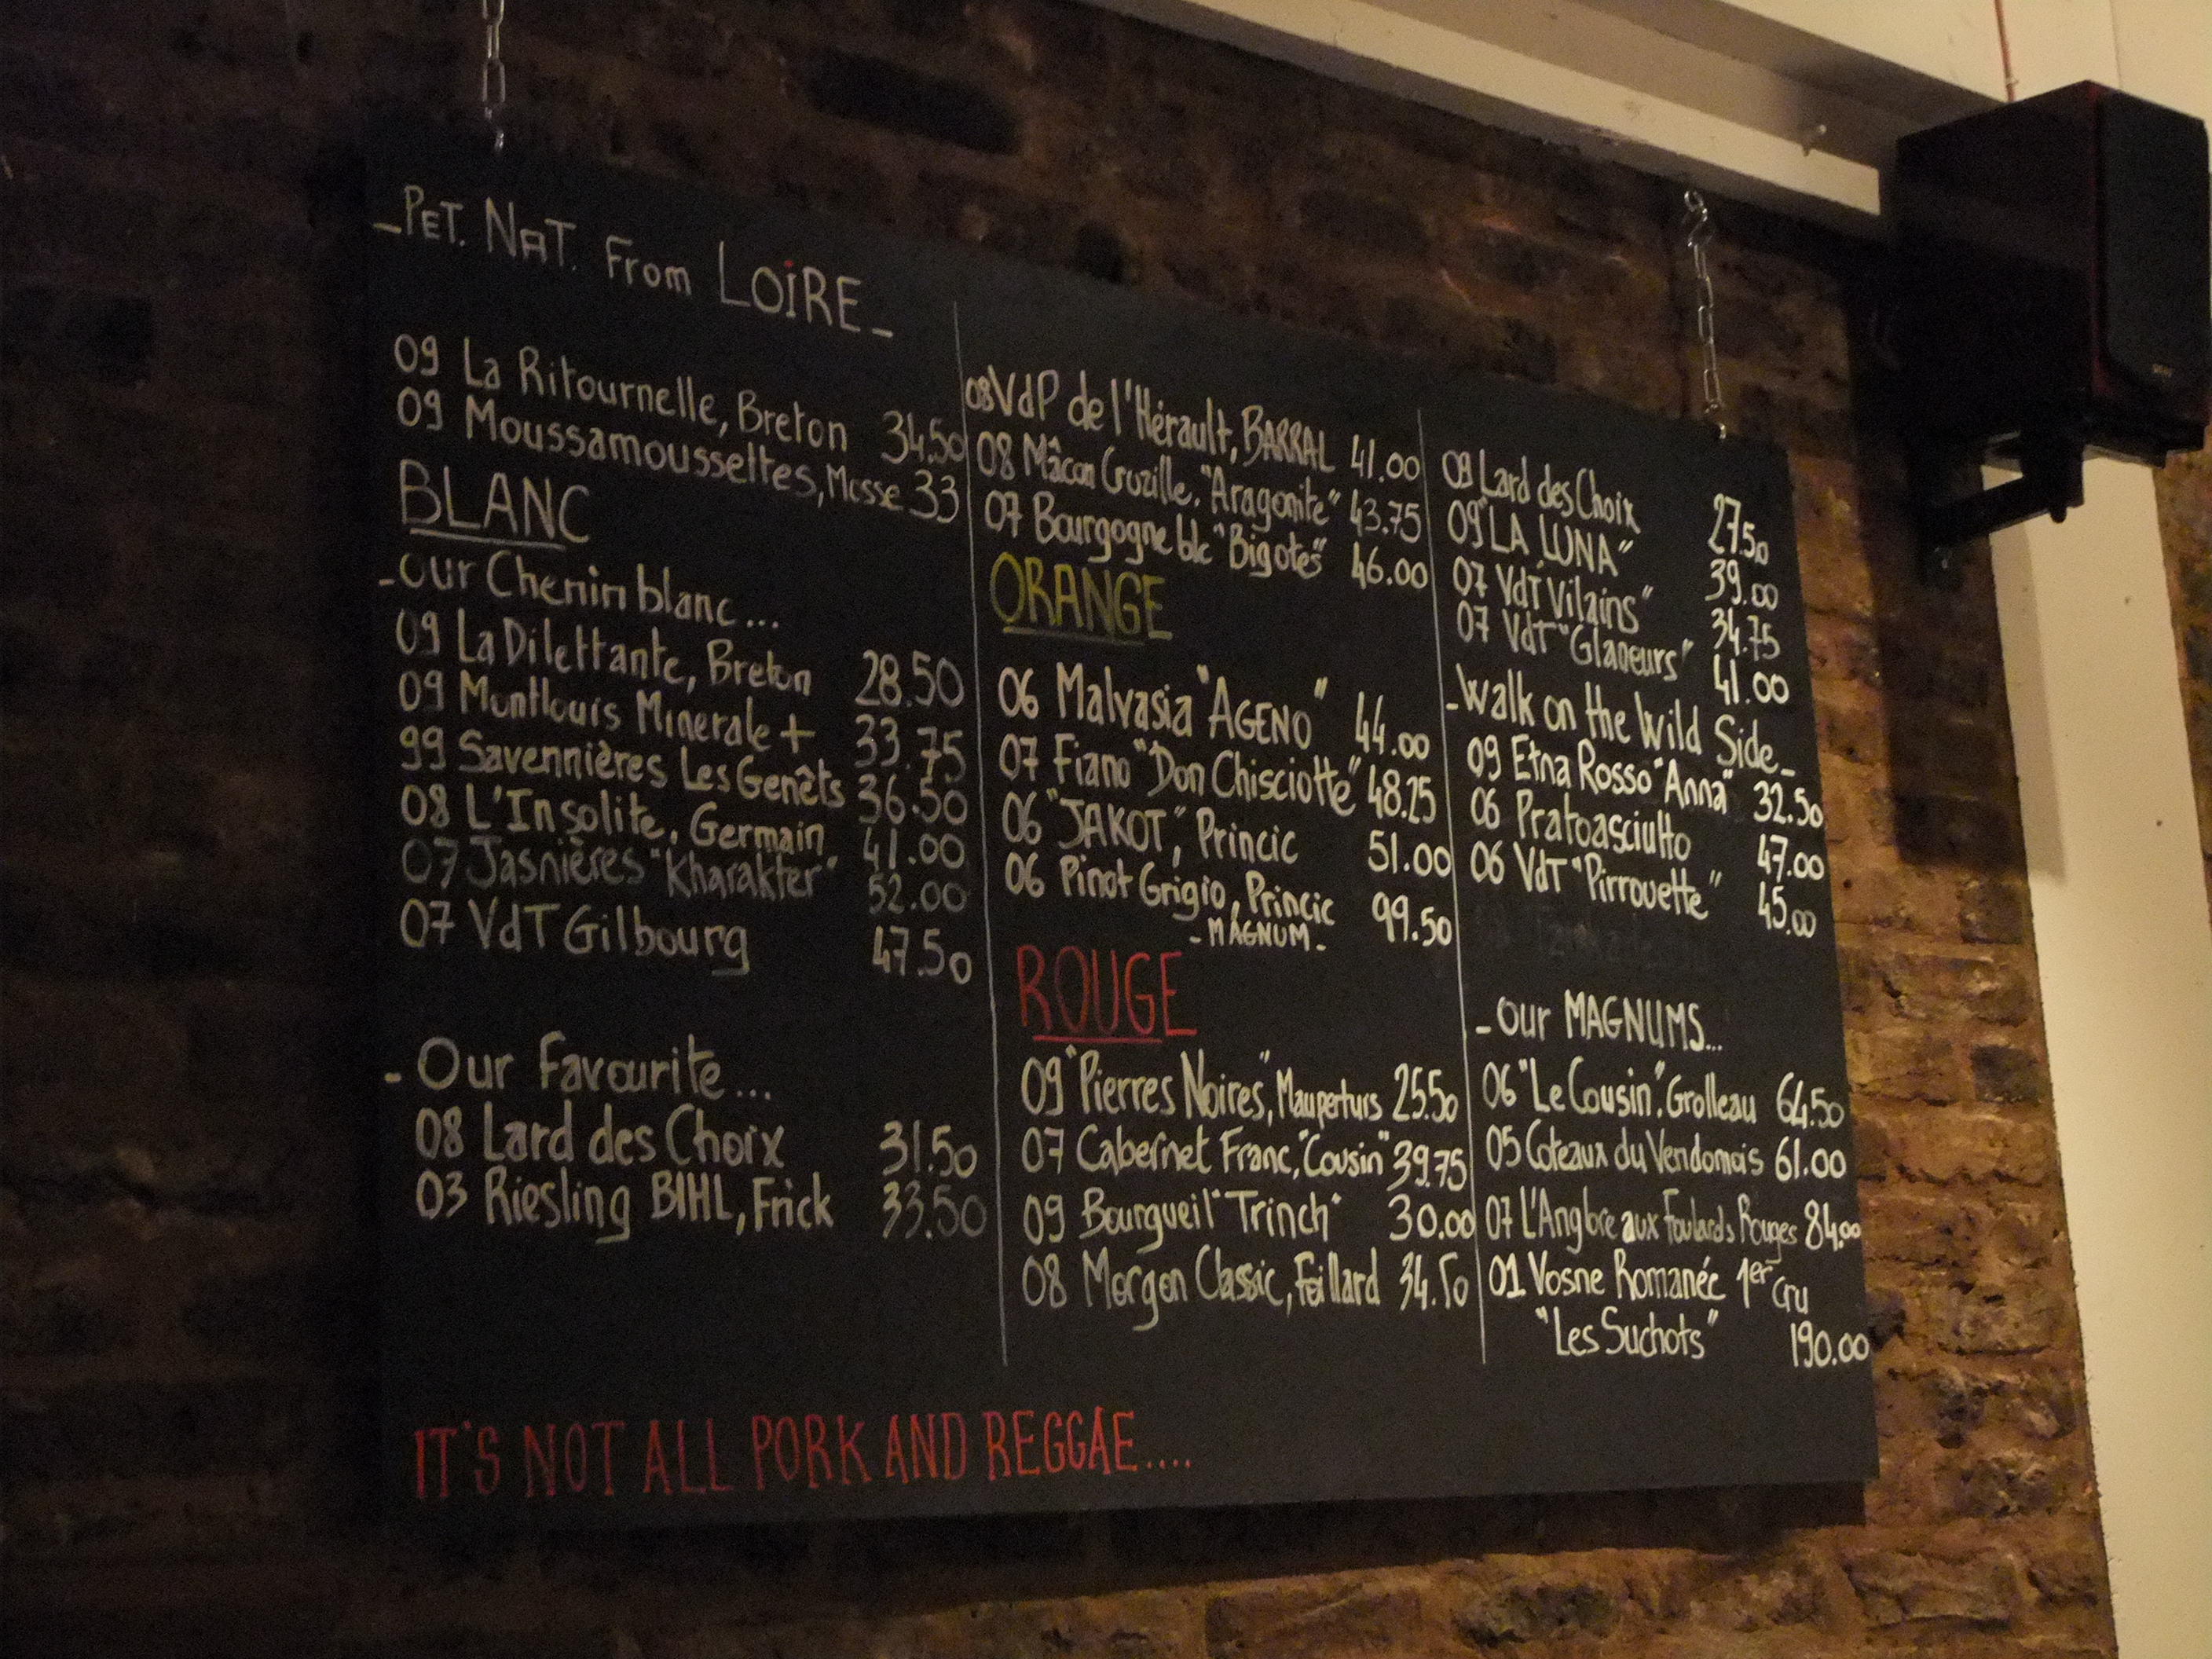 _PET. NAT. From LOIRE_
09 La Ritournelle, Breton 34.50
09 Moussamoussettes, Mosse 33
BLANC
-Our Chenin blanc...
09 La Dilettante, Breton 28.50
09 Montlouis Minerale + 33.75
99 Savennières Les Genêts 36.50
08 L'Insolite, Germain 41.00
07 Jasnières "Kharakter" 52.00
07 VdT Gilbourg 47.50
- Our Favourite...
08 Lard des Choix 31.50
03 Riesling BIHL, Frick 33.50
08 VdP de l'Hérault, BARRAL 41.00
08 Mâcon Cruzille, "Aragonite" 43.75
07 Bourgogne blc "Bigotes" 46.00
ORANGE
06 Malvasia "AGENO" 44.00
07 Fiano "Don Chisciotte" 48.25
06 "JAKOT", Princic 51.00
06 Pinot Grigio, Princic 99.50
- MAGNUM -
ROUGE
09 "Pierres Noires", Mauperturs 25.50
07 Cabernet Franc, "Cousin" 39.75
09 Bourgueil "Trinch" 30.00
08 Morgon Classic, Foillard 34.50
09 Lard des Choix 27.50
09 "LA LUNA" 39.00
07 VdT Vilains" 34.75
07 VdT "Glaneurs" 41.00
-Walk on the Wild Side_
09 Etna Rosso "Anna" 32.50
06 Pratoasciutto 47.00
06 VdT "Pirrouette" 45.00
-Our MAGNUMS...
06 "Le Cousin", Grolleau 64.50
05 Coteaux du Vendomois 61.00
07 L'Anglore aux Foulards Rouges 84.00
01 Vosne Romanée 1er cru
"Les Suchots" 190.00
IT'S NOT ALL PORK AND REGGAE....